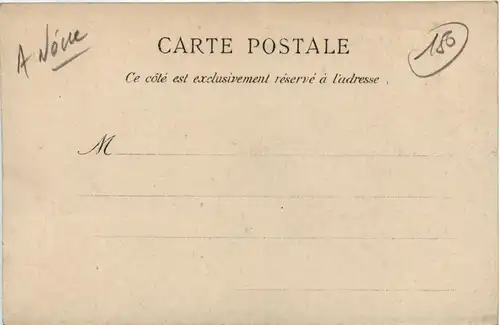 CARTE POSTALE
150
Ce côté est exclusivement réservé à l'adresse.
M